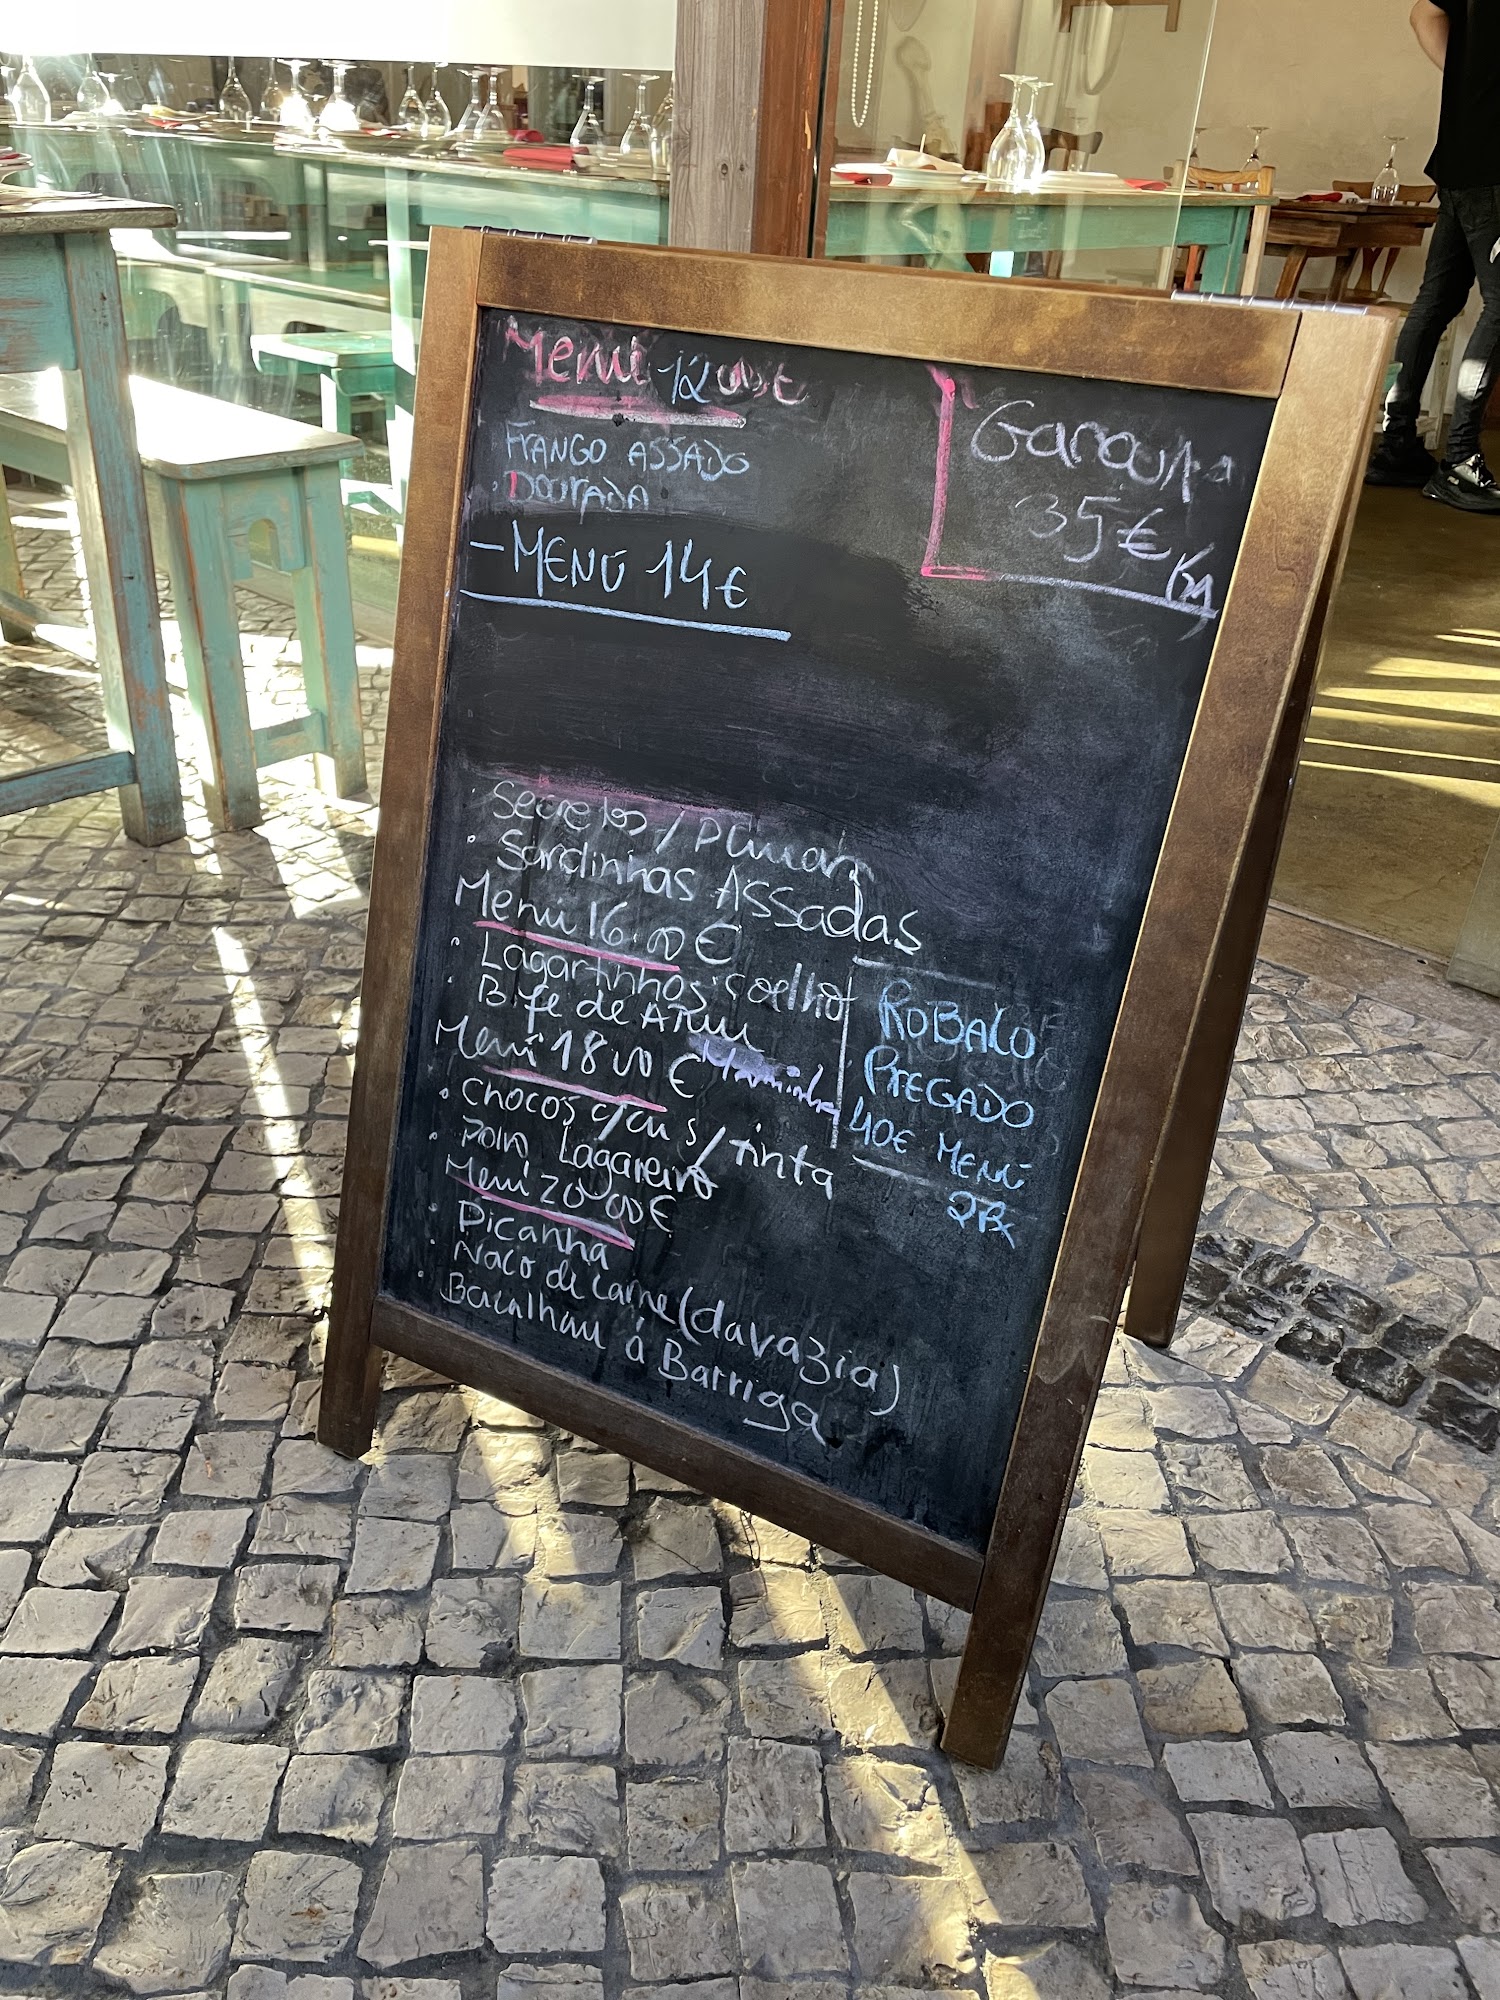 Menú 12
FRANGO ASSADO
DOURADA
- MENÚ 14€
Garoupa
35€ Kg
Secretos / Plumas
Sardinhas Assadas
Menú 16.00€
Lagartinhos coelho
Bife de Atum
Maminha
Menú 18 00€
Chocos c/ / tinta
Polvo Lagareiro
Menú 20 00€
Picanha
Naco de carne (da vazia)
Bacalhau á Barriga
ROBALO
PREGADO
40€ MENÚ
2Px